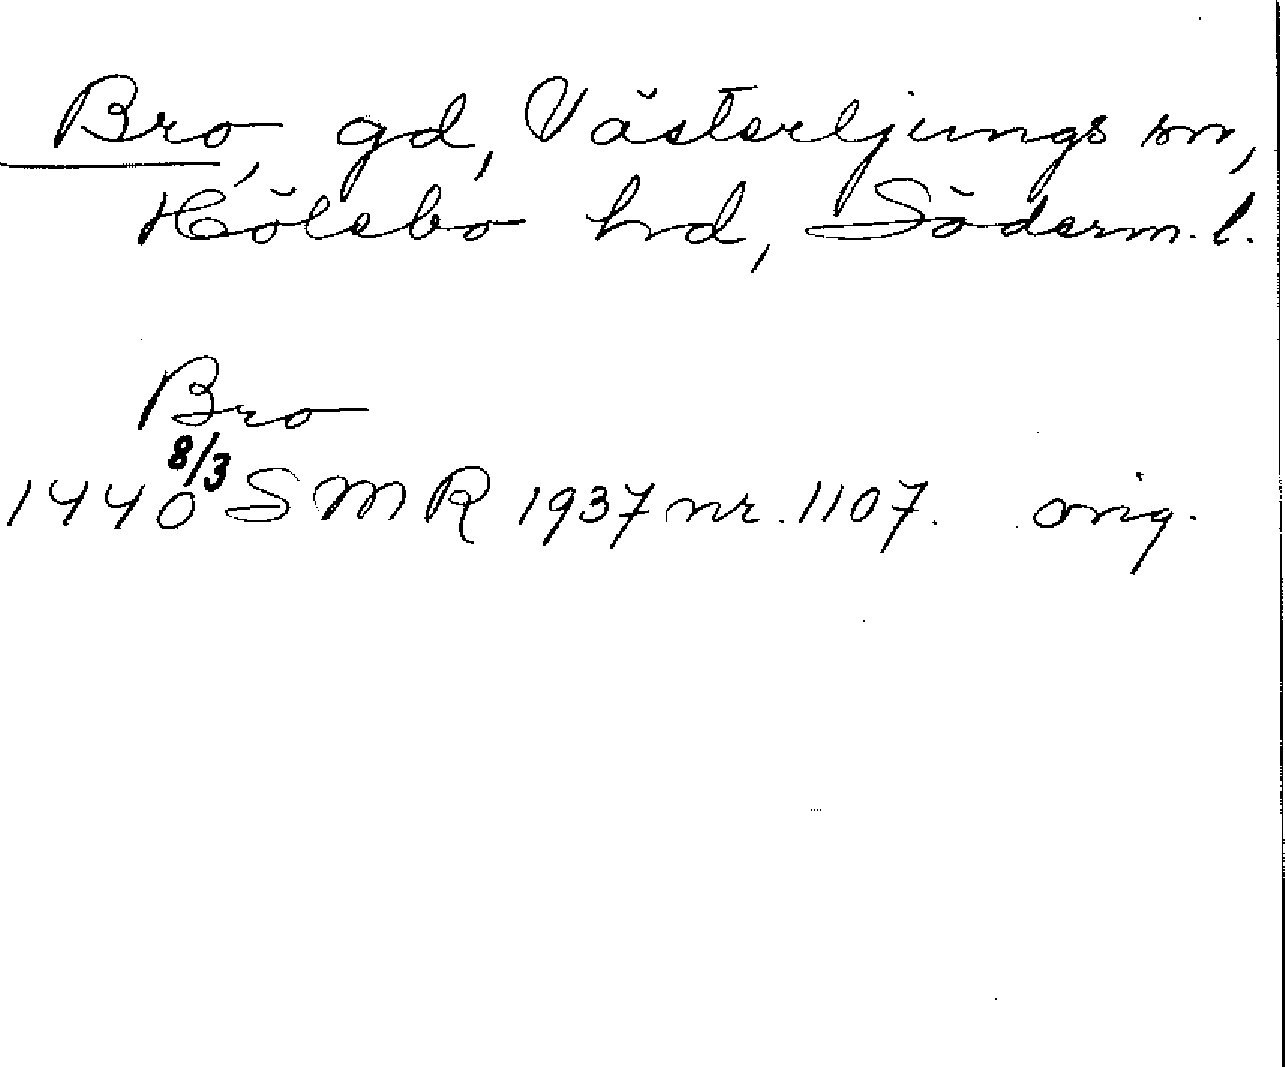 Bro, gd, Västerljungs sn,
Hölebo hd, Söderm. l.
Bro
8/3
1440 SMR 1937 nr. 1107. orig.